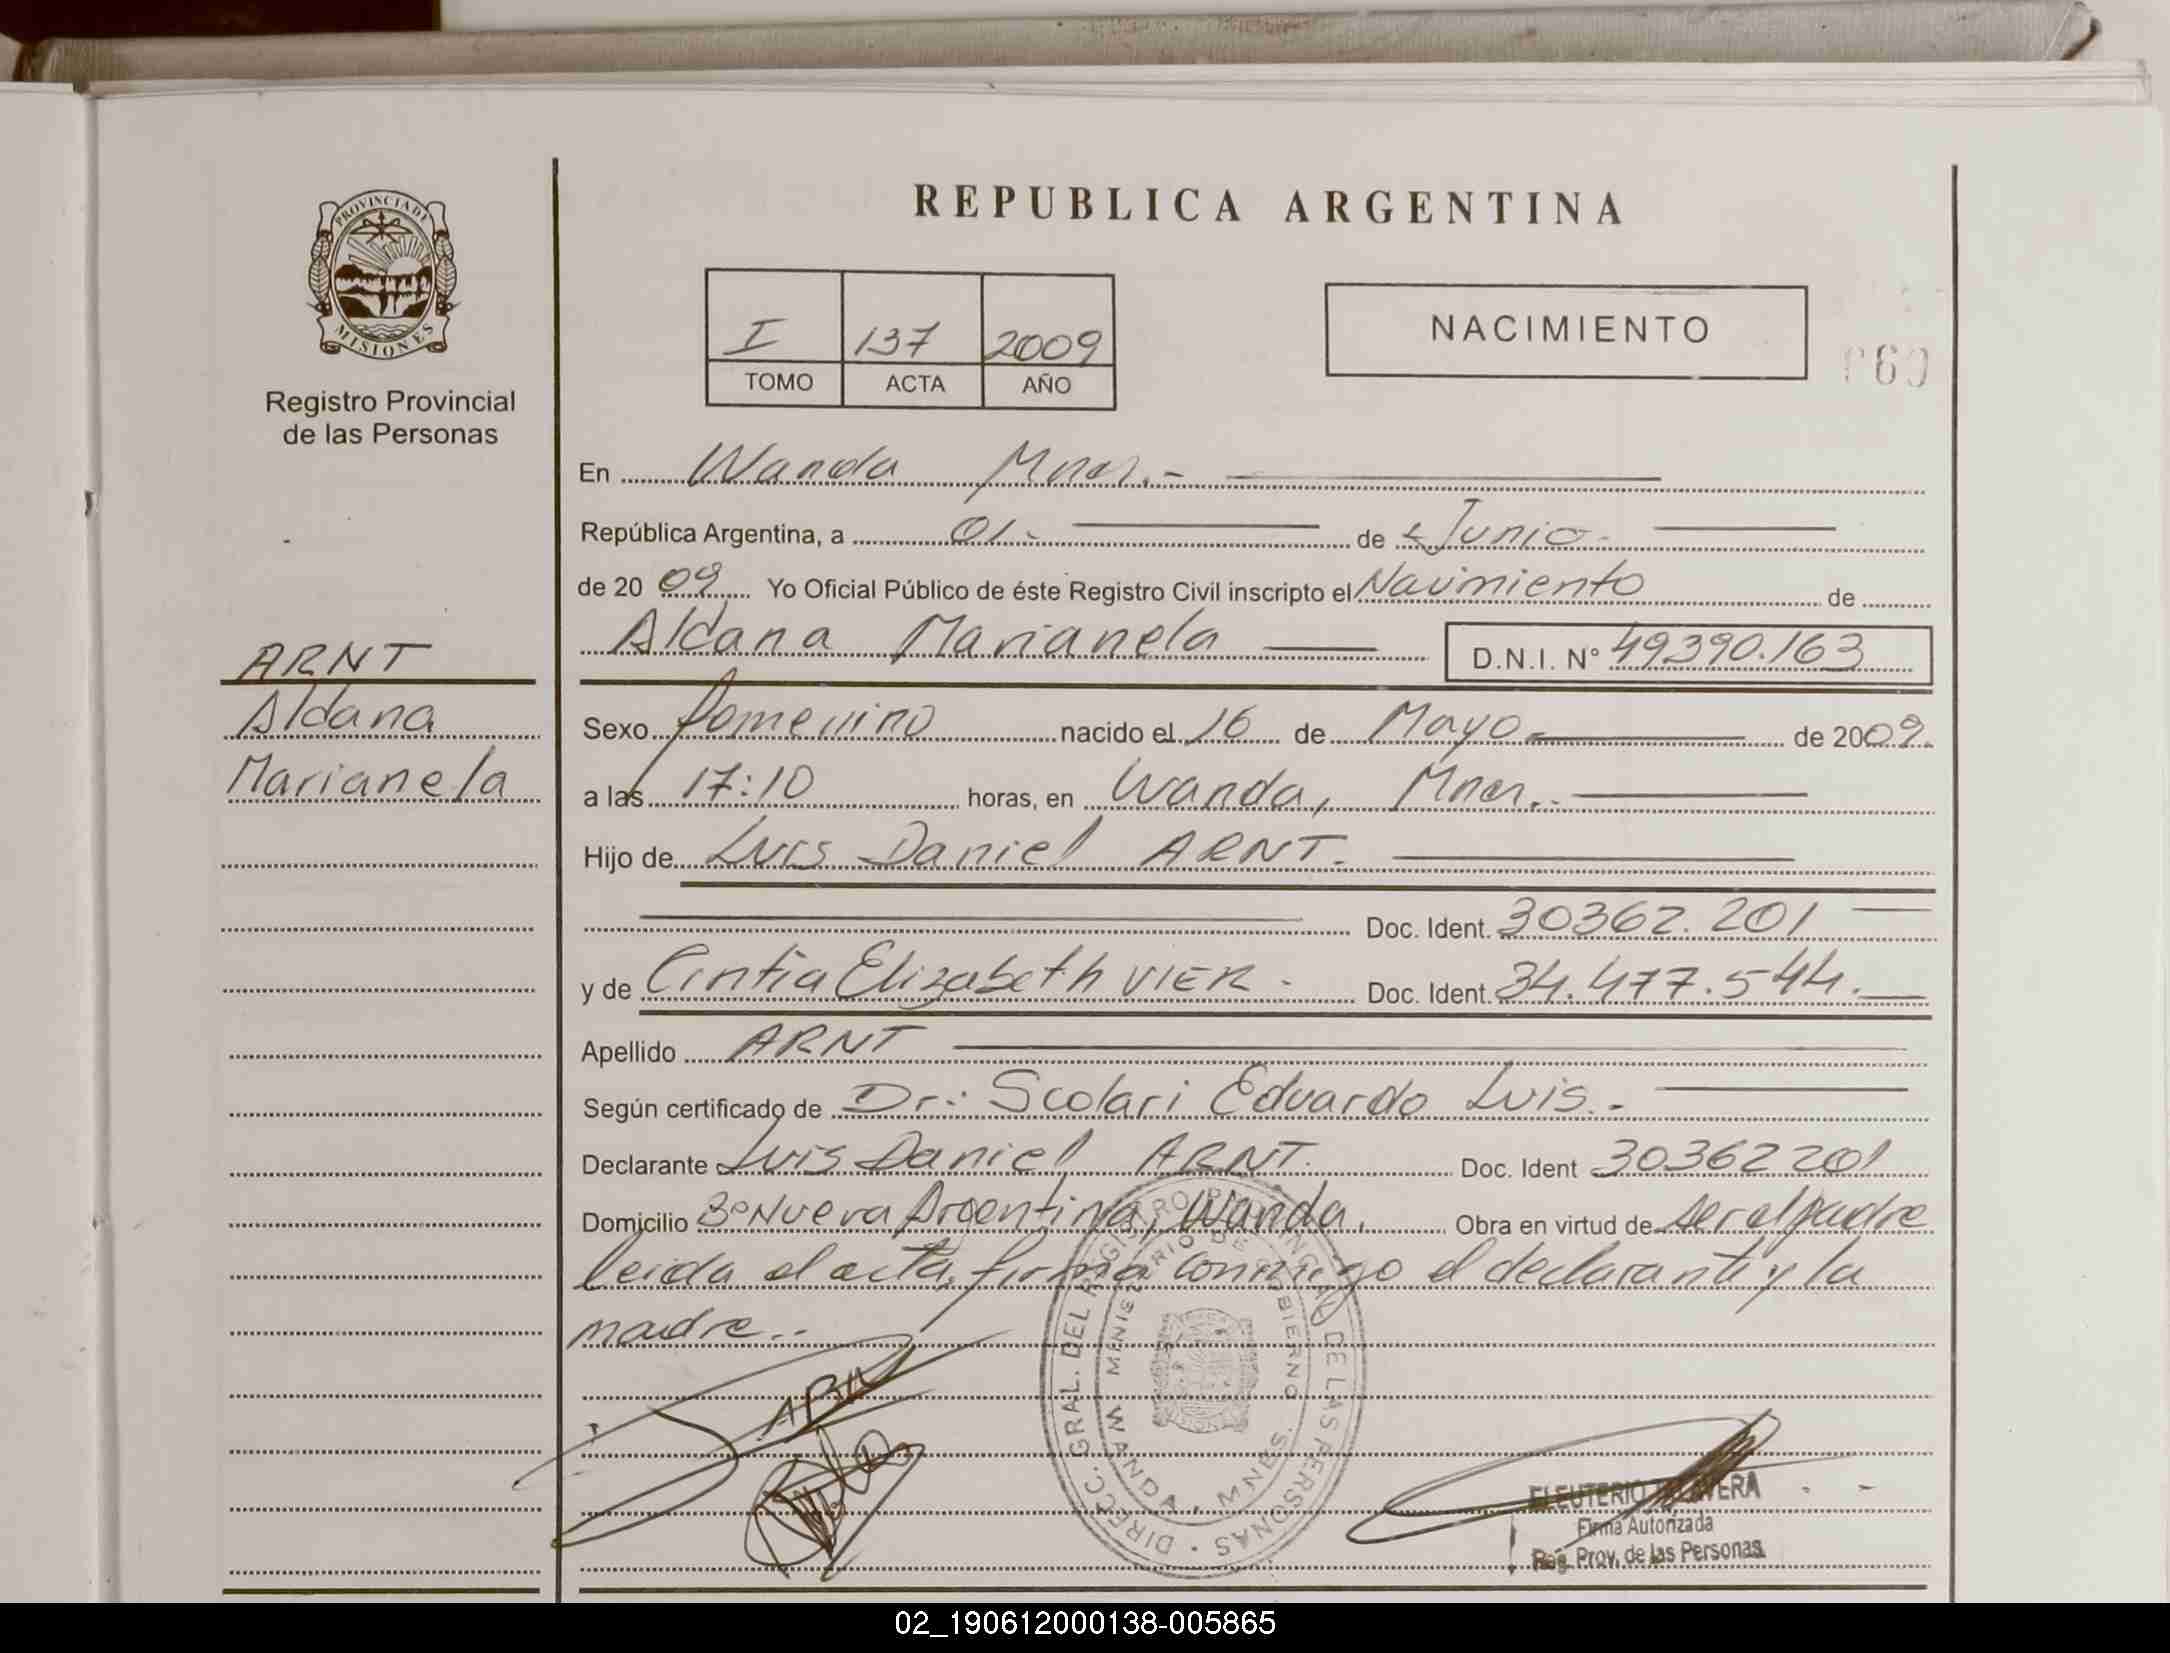 REPUBLICA ARGENTINA
PROVINCIA DE
MISIONES
Registro Provincial
de las Personas
I 137 2009
TOMO ACTA AÑO
NACIMIENTO
060
En Wanda Mnes.-
República Argentina, a 01.- de Junio.-
de 20 09 Yo Oficial Público de éste Registro Civil inscripto el Nacimiento de
Aldana Marianela D.N.I. Nº 49390.163
ARNT
Aldana
Marianela
Sexo Femenino nacido el 16 de Mayo de 2009.
a las 17:10 horas, en Wanda, Mnes.-
Hijo de Luis Daniel ARNT.
Doc. Ident. 30362.201
y de Cintia Elizabeth VIER.- Doc. Ident. 34.477.544.
Apellido ARNT
Según certificado de Dr.: Scolari Eduardo Luis.-
Declarante Luis Daniel ARNT. Doc. Ident 30362201
Domicilio Bº Nueva Argentina, Wanda. Obra en virtud de ser el padre
leida el acta, firma conmigo el declarante y la
madre.-
DIRECC. GRAL. DEL REGISTRO PROVINCIAL DE LAS PERSONAS
MINISTERIO DE GOBIERNO
WANDA • MNES.
ELEUTERIO TALAVERA
Firma Autorizada
Reg. Prov. de las Personas
02_190612000138-005865